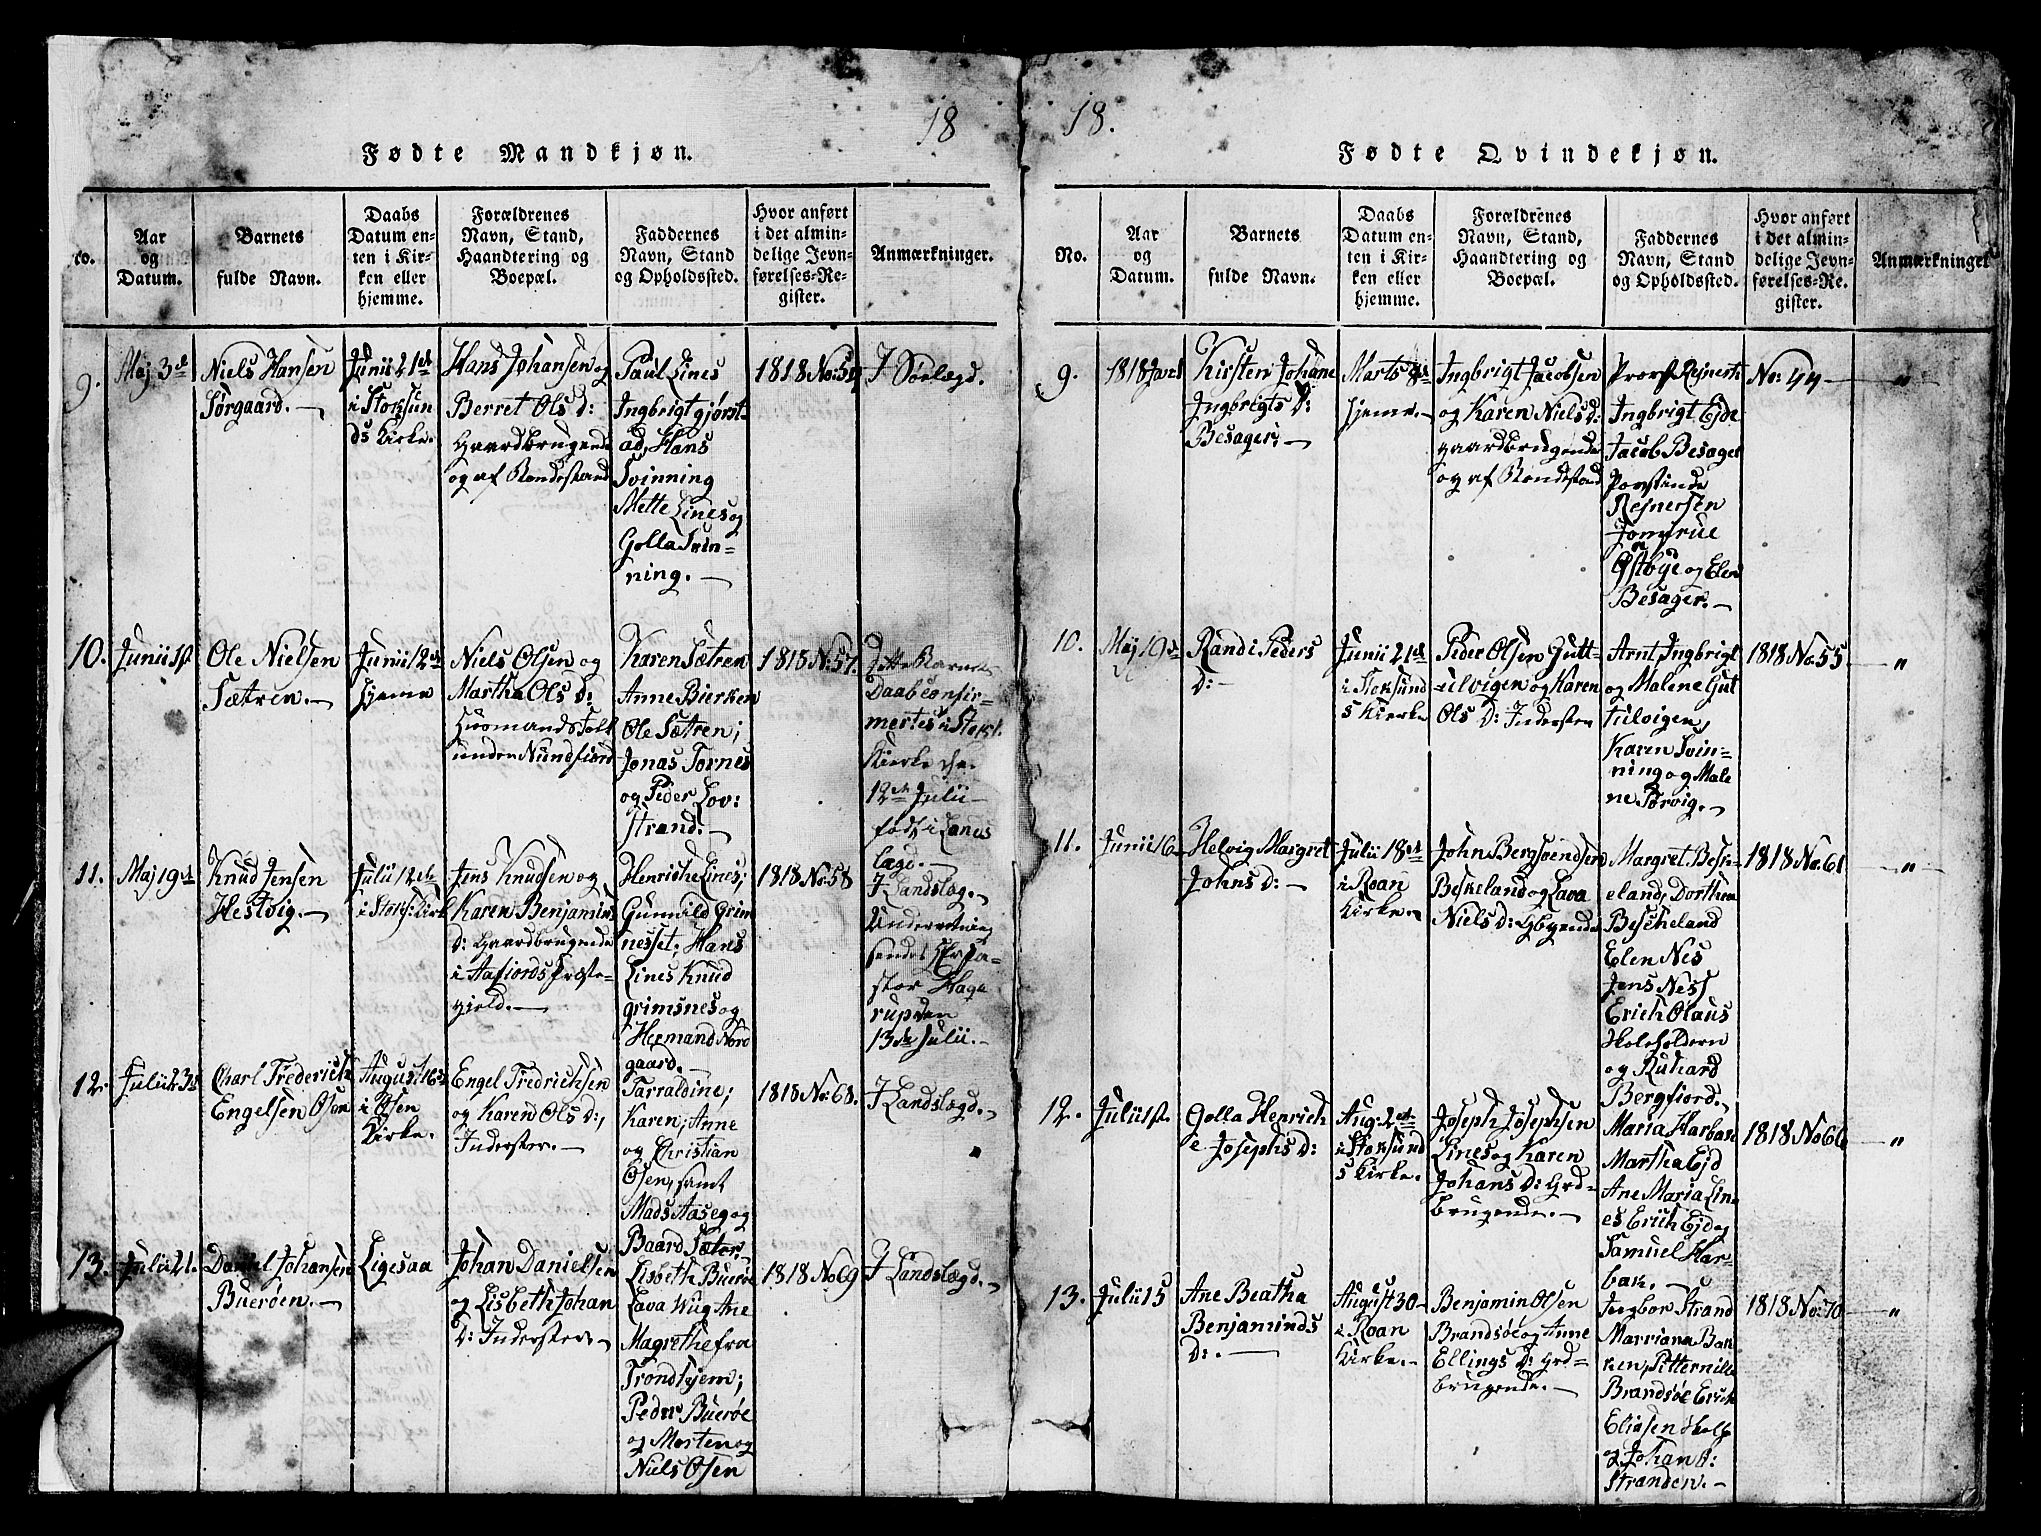 18
Fødte Mandkjøn.
Aar og Datum.
Barnets fulde Navn.
Daabs Datum enten i Kirken eller hjemme.
Forældrenes Navn, Stand, Haandtering og Boepæl.
Faddernes Navn, Stand og Opholdssted.
Hvor anført i det almindelige Jevnførelses-Register.
Anmærkninger.
9.
Maj 3de
Niels Hansen
Sørgaard.
Junii 21de
i Stoksun
ds Kirke.
Hans Johansen og
Berret Ols D:
Gaardbrugende
og af Bondestand
Paul Lines
Ingbrigt gjørst
ad, Hans
Svinning
Mette Lines og
Golla Svin-
ning.
1818 No: 54
I Sørlægd.
10.
Junii 1st
Ole Nielsen
Sætren.
Junii 12de
hjeme
Niels Olsen og
Martha Ols D:
Huusmands Folk
under Nundfiord
Karen Sætren
Anne Bierken
Ole Sætren;
Jonas Tornes
og Peder Lov:
strand.
1818 No: 57.
Dette Barnets
Daab confir-
mertes i Stoks.
Kierke den
12te Julii
født i Lands
lægd.
11.
Maj 19de
Knud Jensen
Hestvig.
Julii 12te
i Stoks: Kirk
Jens Knudsen og
Karen Benjamins
D: Gaardbrugende
i Aafiords Præste-
gield.
Henriche Lines;
Gunnild Grim
nesset; Hans
Lines Knud
grimsnes og
Hermand Nord
gaard.
1818 No: 58
I Landslæg.
Underretning
sendes Hr Pa-
stor Hage
rup den
13de Julii.
12.
Julii 23de
Charl Frederich
Engelsen Osen
August 16de
i Osen
Kirke.
Engel Fredrichsen
og Karen Ols D:,
Inderster.
Tarraldine;
Karen; Anne
og Christian
Osen, samt
Mads Aaseg og
Baard Sæter.
1818 No: 68.
I Landslægd.
13.
Julii 21.
Daniel Johansen
Buerøen.
Ligesaa
Johan Danielsen
og Lisbeth Johan
D: Inderster.
Lisbeth Buerøe
Lava Wug Ane
Magrethe fra
Trondhjem;
Peder Buerøe
og Morten og
Niels Osen
1818 No 69
I Landslægd.
18.
Fødte Qvindekjøn.
No.
Aar og Datum.
Barnets fulde Navn.
Daabs Datum enten i Kirken eller hjemme.
Forældrenes Navn, Stand, Haandtering og Boepæl.
Faddernes Navn, Stand og Opholdssted.
Hvor anført i det almindelige Jevnførelses-Register.
Anmærkninger
9.
1818 Jan
Kirsten Johane
Ingbrigts D:
Besager
Marts 8de
hjeme.
Ingbrigt Jacobsen
og Karen Niels D:
gaardbrugende
og af Bondestand
Provst Rejnerts
Ingbrigt Ejde
Jacob Besager
Provstinde
Rejnersen
Jomfrue
Østbye og Elen
Besager.
No: 44
"
10.
Maj 19de
Randi Peders
D:
Junii 21de
i Stoksund
s Kierke
Peder Olsen Gutt-
elvigen og Karen
Ols D: Inderster
Arnt, Ingbrigt
og Malene Gut
Tulvigen,
Karen Svin-
ning og Male
ne Tørvig.
1818 No: 55.
"
11.
Junii 16
Helvig Margret
Johns D:
Julii 18de
i Roan
Kirke.
John Bergsvendsen
Beskeland og Lava
Niels D: Gbgende
Margret. Besk-
eland, Dorthea
Bescheland
Elen Nes
Jens Ness
Erich Olaus
Skoleholdern
og Richard
Bergfiord.
1818 No. 61
"
12.
Julii 1st.
Golla Henrich
e Josephs D:
Aug: 2de
i Stoksund
s Kirke.
Joseph Josephsen
Lines og Karen
Johans D: Grd-
brugende.
Maria Harbak
Martha Ejd
Ane Maria Lin
es Erich Ejd og
Samuel Har-
bak.
1818 No 66
"
13.
Julii 15
Ane Beatha
Benjaminds
D:.
August 30
i Roan
Kirke.
Benjamin Olsen
Brandsøe og Anne
Ellings D: Grd-
brugende.
Ingbor Strand
Marriana Bak
ken, Pitternille
Brandsøe Erich
Eliasen Skolh
og Johan O:
Stranden.
1818 No: 70
"